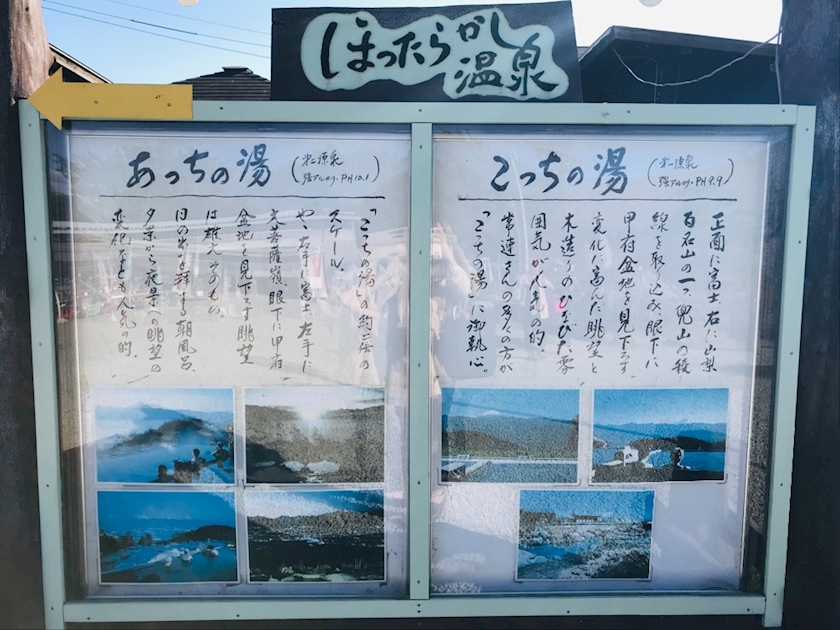 ほったらかし温泉
あっちの湯
(㐧二源泉
強アルカリ・PH10.1)
「こっちの湯」の約二倍の
スケール。
やゝ右手に富士、左手に
大菩薩嶺、眼下に甲府
盆地を見下す眺望
は雄大そのもの。
日の出を拝する朝風呂、
夕景から夜景への眺望の
変化なども人気の的。
こっちの湯
(㐧一源泉
強アルカリ・PH9.9)
正面に富士、右に山梨
百名山の一つ、兜山の稜
線を取り込み、眼下に
甲府盆地を見下ろす
変化に富んだ眺望と
木造りのひなびた雰
囲気が人気の的。
常連さんの多くの方が
「こっちの湯」に御執心。